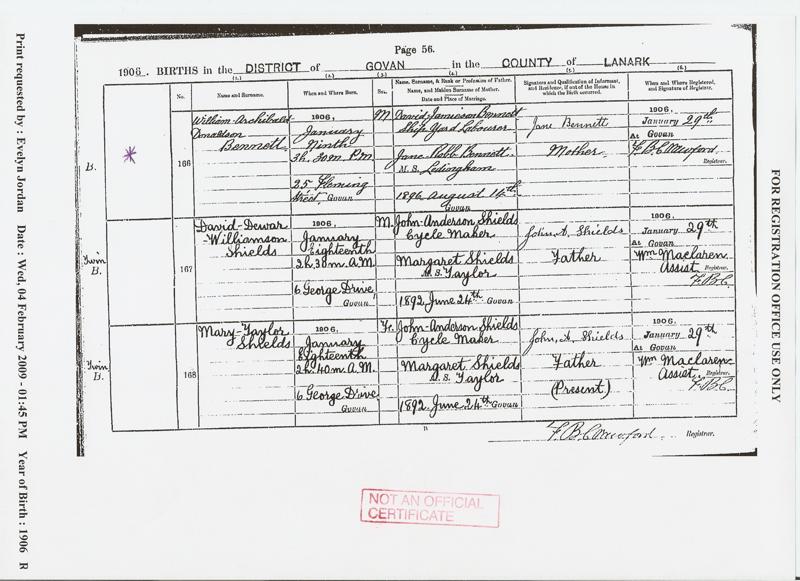 Page 56.
1906. BIRTHS in the DISTRICT of GOVAN in the COUNTY of LANARK
(1.) (2.) (3.) (4.) (5.) (6.)
No.
Name and Surname.
When and Where Born.
Sex.
Name, Surname, & Rank or Profession of Father.
Name, and Maiden Surname of Mother.
Date and Place of Marriage.
Signature and Qualification of Informant,
and Residence, if out of the House in
which the Birth occurred.
When and Where Registered,
and Signature of Registrar.
B.
166
William Archibald
Donaldson
Bennett
1906,
January
Ninth
3h. 30m. P.M.
25 Fleming
Street Govan
M
David Jamieson Bennett
Ship Yard Labourer
Jane Robb Bennett
M.S. Ledingham
1896, August 14th
Govan
Jane Bennett
Mother
1906.
January 29th
At Govan
F. B. Crawford
Registrar.
Twin
B.
167
David-Dewar
-Williamson
Shields
1906,
January
Eighteenth
2h. 30m. A.M.
6 George Drive
Govan
M.
John-Anderson Shields
Cycle Maker
Margaret Shields
M.S. Taylor
1892, June 24th Govan
John A. Shields
Father
1906.
January 29th
At Govan
Wm Maclaren
Assist. Registrar.
F.B.C.
Twin
B.
168
Mary-Taylor
Shields
1906,
January
Eighteenth
2h. 40m. A.M.
6 George Drive
Govan
Fe.
John-Anderson Shields
Cycle Maker
Margaret Shields
M.S. Taylor
1892, June 24th Govan
John, A. Shields
Father
(Present)
1906.
January 29th
At Govan
Wm Maclaren
Assist. Registrar.
F.B.C.
F. B. Crawford Registrar.
NOT AN OFFICIAL
CERTIFICATE
Print requested by : Evelyn Jordan Date : Wed, 04 February 2009 - 01:45 PM Year of Birth : 1906 R
FOR REGISTRATION OFFICE USE ONLY